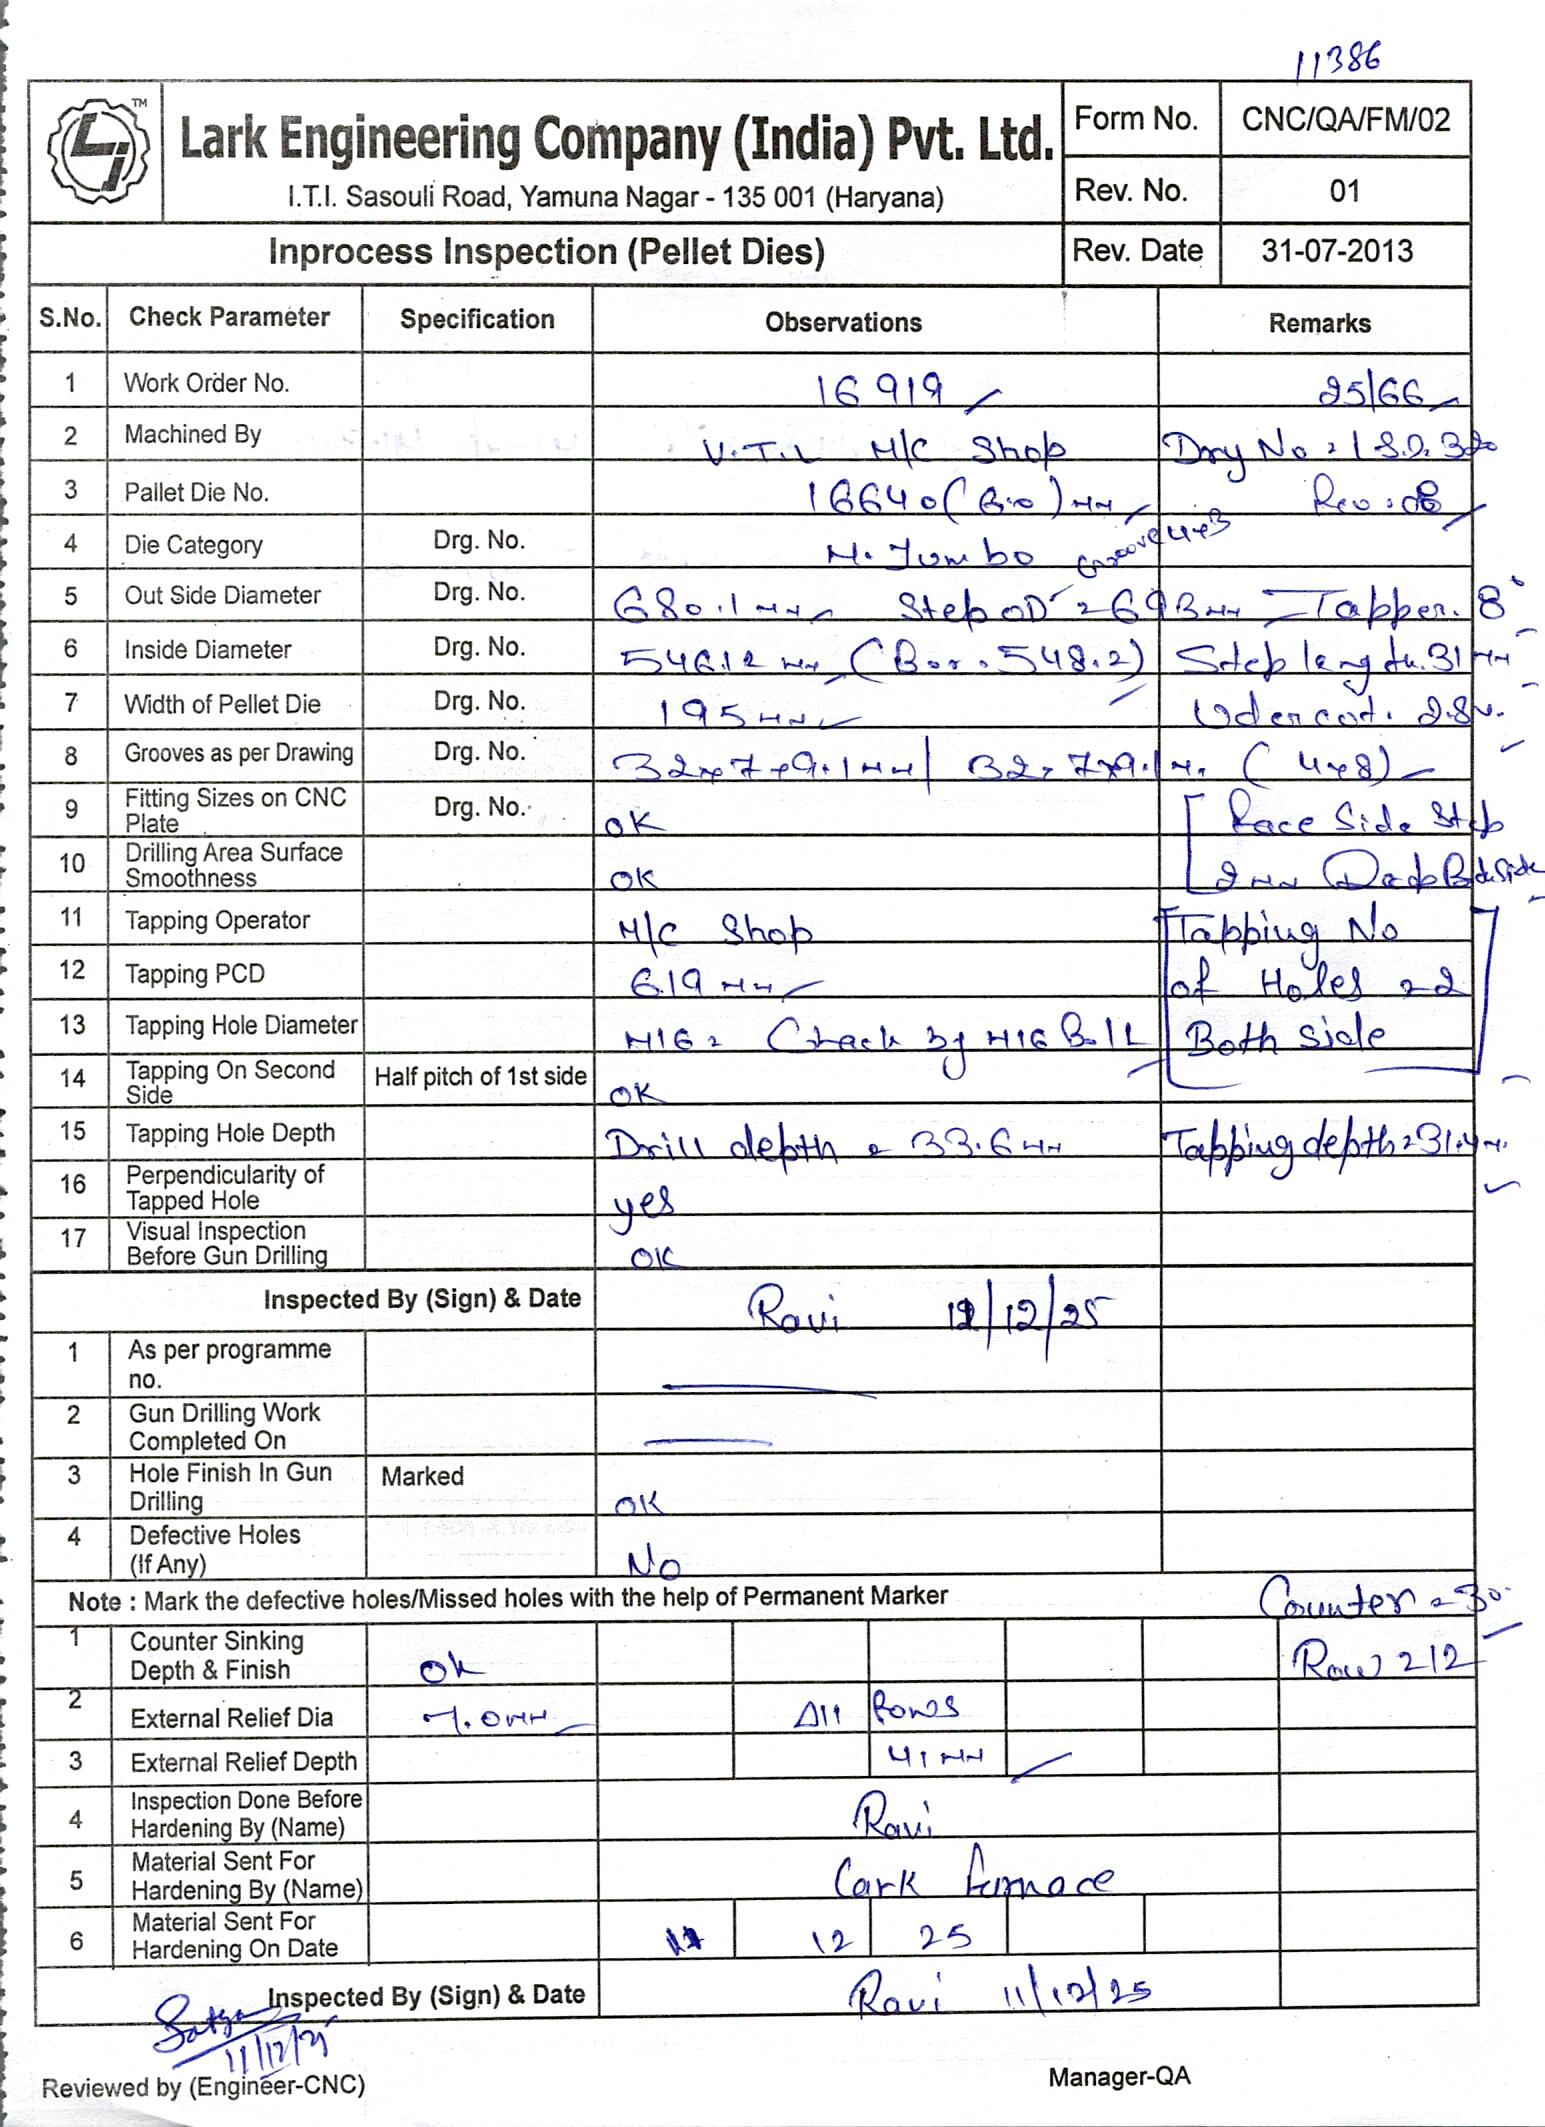 11386
TM
Lark Engineering Company (India) Pvt. Ltd.
I.T.I. Sasouli Road, Yamuna Nagar - 135 001 (Haryana)
Form No. CNC/QA/FM/02
Rev. No. 01
Inprocess Inspection (Pellet Dies) Rev. Date 31-07-2013
S.No. Check Parameter Specification Observations Remarks
1 Work Order No. 16919 25/66
2 Machined By V.T.L M/C Shop Drg No = LS.D. 320
3 Pallet Die No. 16640 (Bio) Rev. 08
4 Die Category Drg. No. M. Jumbo Groove 4x3
5 Out Side Diameter Drg. No. 680.1 mm Step OD = 693 mm Tapper. 8°
6 Inside Diameter Drg. No. 546.12 mm (Bor. 548.2) Step length. 31 mm
7 Width of Pellet Die Drg. No. 195 mm Udercut. 2.8
8 Grooves as per Drawing Drg. No. 32x7x9.1mm / 32x7x9.1m. (4x8)
9 Fitting Sizes on CNC Plate Drg. No. OK Race Side Step
10 Drilling Area Surface Smoothness OK 2mm Side
11 Tapping Operator M/C Shop Tapping No
12 Tapping PCD 619 mm of Holes = 2
13 Tapping Hole Diameter M16 = Check by M16 Bolt Both Side
14 Tapping On Second Side Half pitch of 1st side OK
15 Tapping Hole Depth Drill depth = 33.6 mm Tapping depth = 31.4m.
16 Perpendicularity of Tapped Hole yes
17 Visual Inspection Before Gun Drilling OK
Inspected By (Sign) & Date Ravi /12/25
1 As per programme no.
2 Gun Drilling Work Completed On
3 Hole Finish In Gun Drilling Marked OK
4 Defective Holes (If Any) No
Note : Mark the defective holes/Missed holes with the help of Permanent Marker Counter = 30
1 Counter Sinking Depth & Finish Ok Row = 12
2 External Relief Dia 7.0mm All Rows
3 External Relief Depth 41 mm
4 Inspection Done Before Hardening By (Name) Ravi
5 Material Sent For Hardening By (Name) Lark furnace
6 Material Sent For Hardening On Date 11 12 25
Inspected By (Sign) & Date Ravi 11/12/25
11/12/25
Reviewed by (Engineer-CNC) Manager-QA